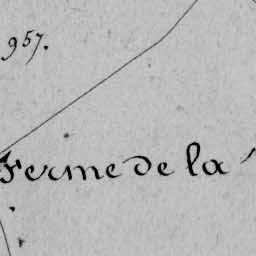 957.
Ferme de la